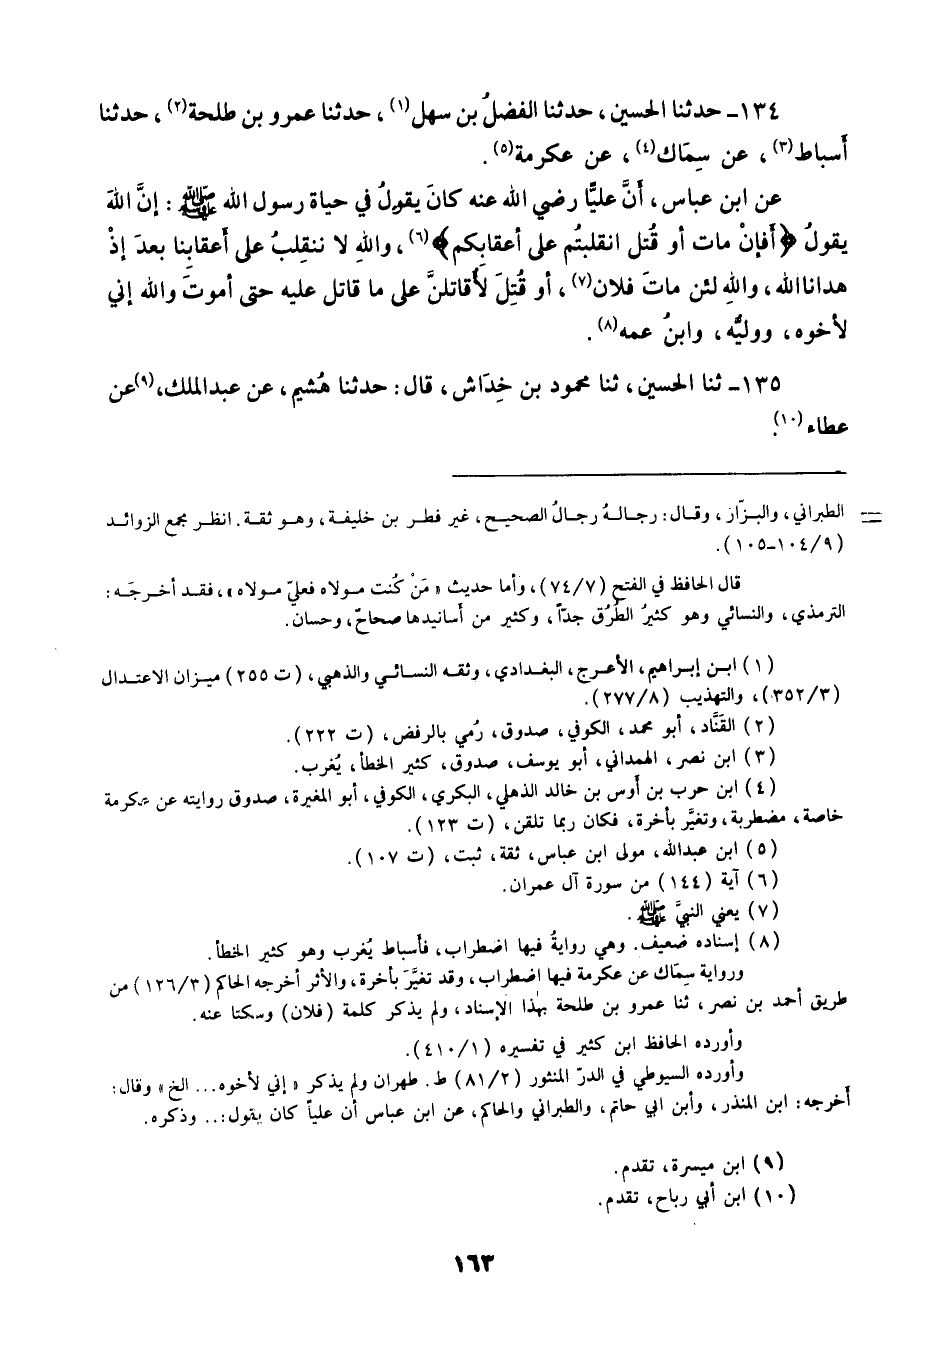 ١٣٤ـ حدثنا الحسين، حدثنا الفضلُ بن سهل(١)، حدثنا عمرو بن طلحة(٢)، حدثنا
أَسباط(٣)، عن سِمَاك(٤)، عن عكرمة(٥).
عن ابن عباس، أَنَّ عليًّا رضي الله عنه كانَ يقولُ في حياة رسول الله ﷺ: إنَّ اللهَ
يقولُ ﴿أَفإنْ مات أو قُتل انقلبتُم على أعقابِكم﴾(٦)، واللهِ لا ننقلِبُ على أَعقابِنا بعدَ إذْ
هدانا الله، واللهِ لئن ماتَ فلان(٧)، أو قُتِلَ لأقاتلنَّ على ما قاتل عليه حتى أموتَ والله إني
لأخوه، ووليُّه، وابنُ عمه(٨).
١٣٥ـ ثنا الحسين، ثنا محمود بن خِدَاش، قال: حدثنا هُشيم، عن عبدالملك،(٩) عن
عطاء(١٠).
= الطبراني، والبزّار، وقال: رجالهُ رجالُ الصحيح، غير فطر بن خليفة، وهو ثقة. انظر مجمع الزوائد
(٩/١٠٤ـ١٠٥).
قال الحافظ في الفتح (٧/٧٤)، وأما حديث «مَنْ كُنت مولاه فعليّ مولاه»، فقد أخرجَه:
الترمذي، والنسائي وهو كثيرُ الطُرُق جدّاً، وكثير من أسانيدها صحاحٌ، وحسان.
(١) ابن إبراهيم، الأعرج، البغدادي، وثقه النسائي والذهبي، (ت ٢٥٥) ميزان الاعتدال
(٣/٣٥٢)، والتهذيب (٨/٢٧٧).
(٢) القَنَّاد، أبو محمد، الكوفي، صدوق، رُمي بالرفض، (ت ٢٢٢).
(٣) ابن نصر، الهمداني، أبو يوسف، صدوق، كثير الخطأ، يُغرب.
(٤) ابن حرب بن أوس بن خالد الذهلي، البكري، الكوفي، أبو المغيرة، صدوق روايته عن عكرمة
خاصة، مضطربة، وتغيَّر بأخرة، فكان ربما تلقن، (ت ١٢٣).
(٥) ابن عبدالله، مولى ابن عباس، ثقة، ثبت، (ت ١٠٧).
(٦) آية (١٤٤) من سورة آل عمران.
(٧) يعني النبيَّ ﷺ.
(٨) إسناده ضعيف. وهي روايةُ فيها اضطراب، فأسباط يُغرب وهو كثير الخطأ.
ورواية سِمَاك عن عكرمة فيها اضطراب، وقد تغيَّرَ بأخرة، والأثر أخرجه الحاكم (٣/١٢٦) من
طريق أحمد بن نصر، ثنا عمرو بن طلحة بهذا الإسناد، ولم يذكر كلمة (فلان) وسكتا عنه.
وأورده الحافظ ابن كثير في تفسيره (١/٤١٠).
وأورده السيوطي في الدرّ المنثور (٢/٨١) ط. طهران ولم يذكر «إني لأخوه... الخ» وقال:
أَخرجه: ابن المنذر، وأبن ابي حاتم، والطبراني والحاكم، عن ابن عباس أن علياً كان يقول:.. وذكره.
(٩) ابن ميسرة، تقدم.
(١٠) ابن أبي رباح، تقدم.
١٦٣